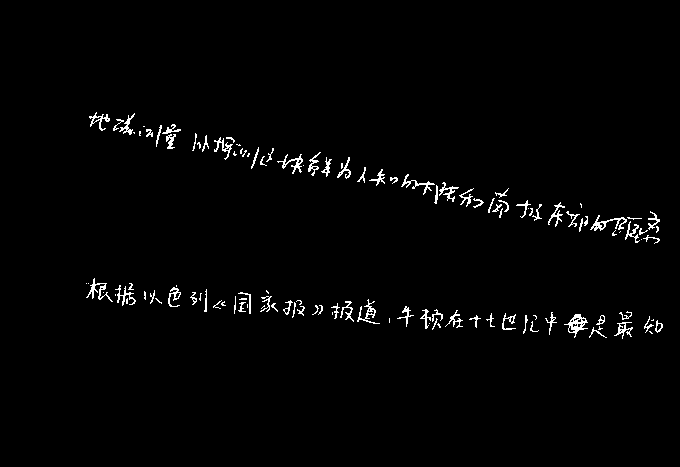 地磁测量以探测这块鲜为人知的大陆和南极东部的距离
根据以色列《国家报》报道,牛顿在十七世纪中是最知